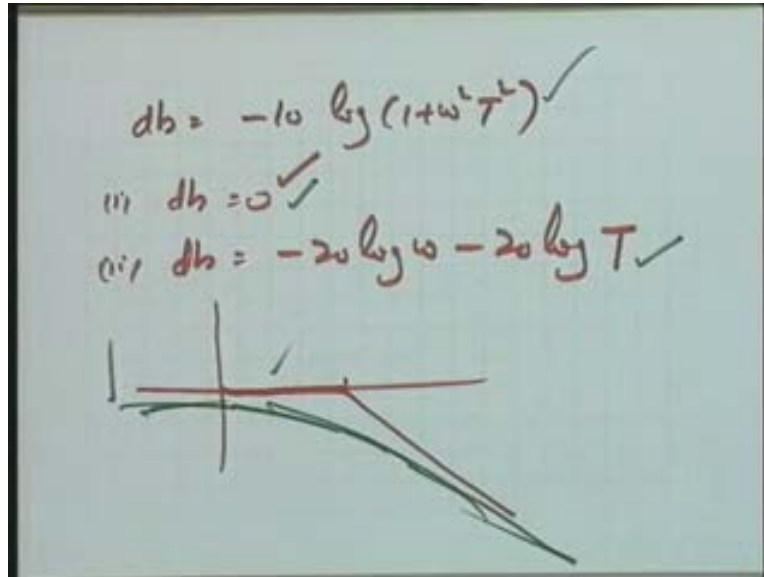 db = -10 log (1+ω²T²)
(i) db = 0
(ii) db = -20 log ω - 20 log T